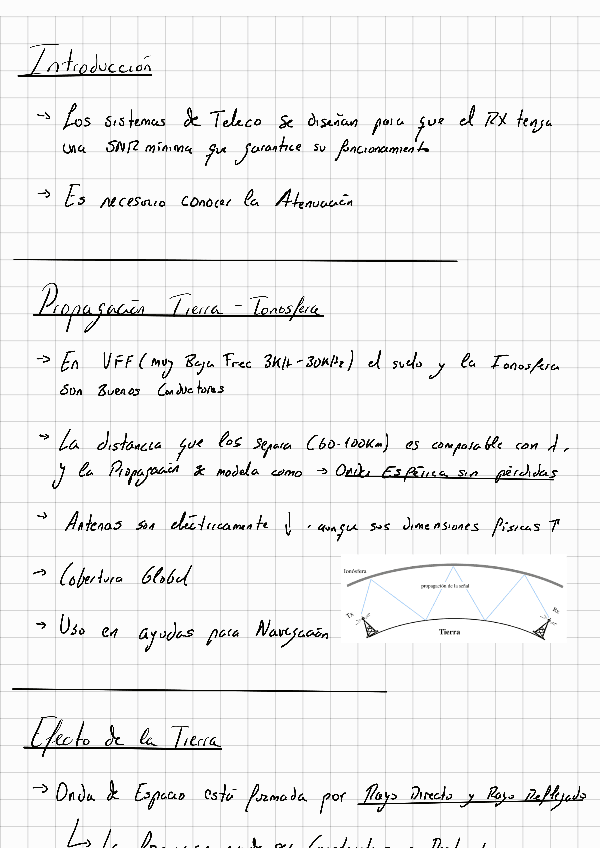 Introducción
→ Los sistemas de Teleco se diseñan para que el RX tenga
una SNR mínima que garantice su funcionamiento
→ Es necesario conocer la Atenuación
Propagación Tierra - Ionosfera
→ En VFF (muy Baja Frec 3KH-30KHz) el suelo y la Ionosfera
son Buenos Conductores
→ La distancia que los separa (60-100Km) es comparable con λ,
y la Propagación se modela como → Onda Esférica sin pérdidas
→ Antenas son eléctricamente ↓, aunque sus dimensiones físicas ↑
→ Cobertura Global
→ Uso en ayudas para Navegación
Ionósfera
propagación de la señal
Tx
Rx
Tierra
Efecto de la Tierra
→ Onda de Espacio está formada por Rayo Directo y Rayo Reflejado